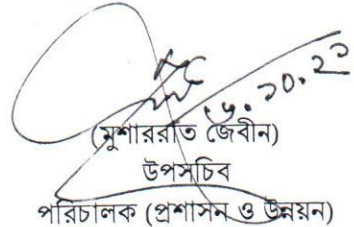 (মুশাররাত জেবীন)
উপসচিব
পরিচালক (প্রশাসন ও উন্নয়ন)